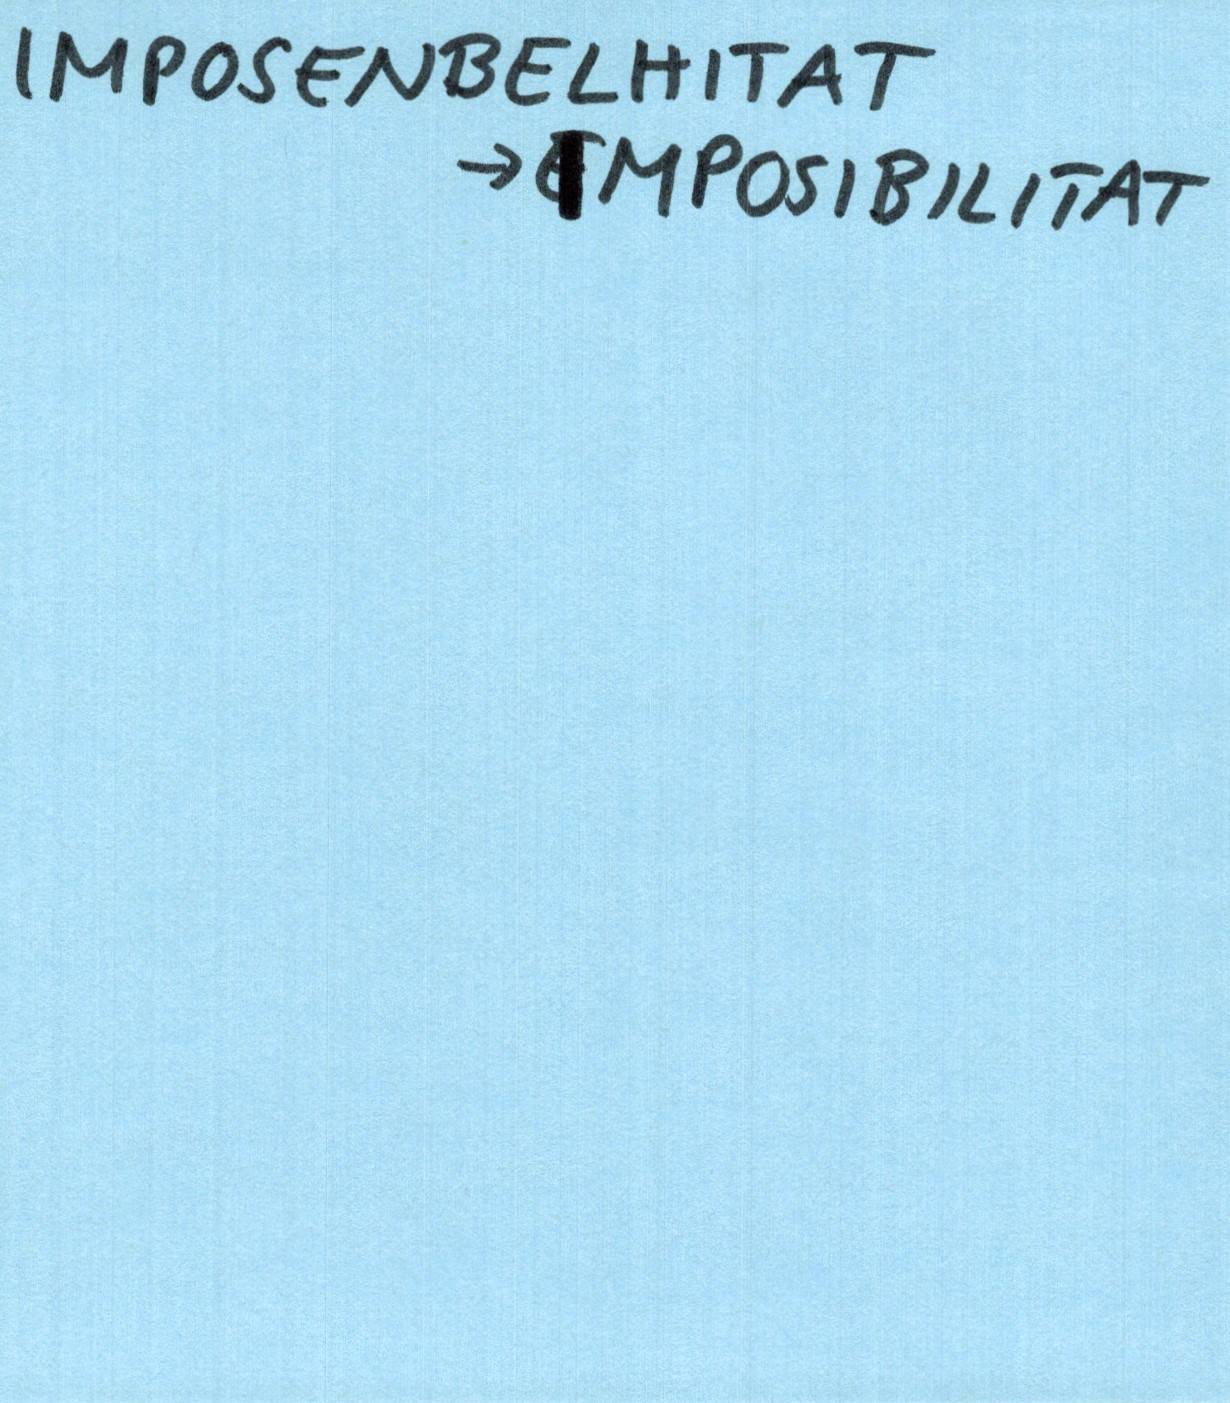 IMPOSENBELHITAT
→ IMPOSIBILITAT